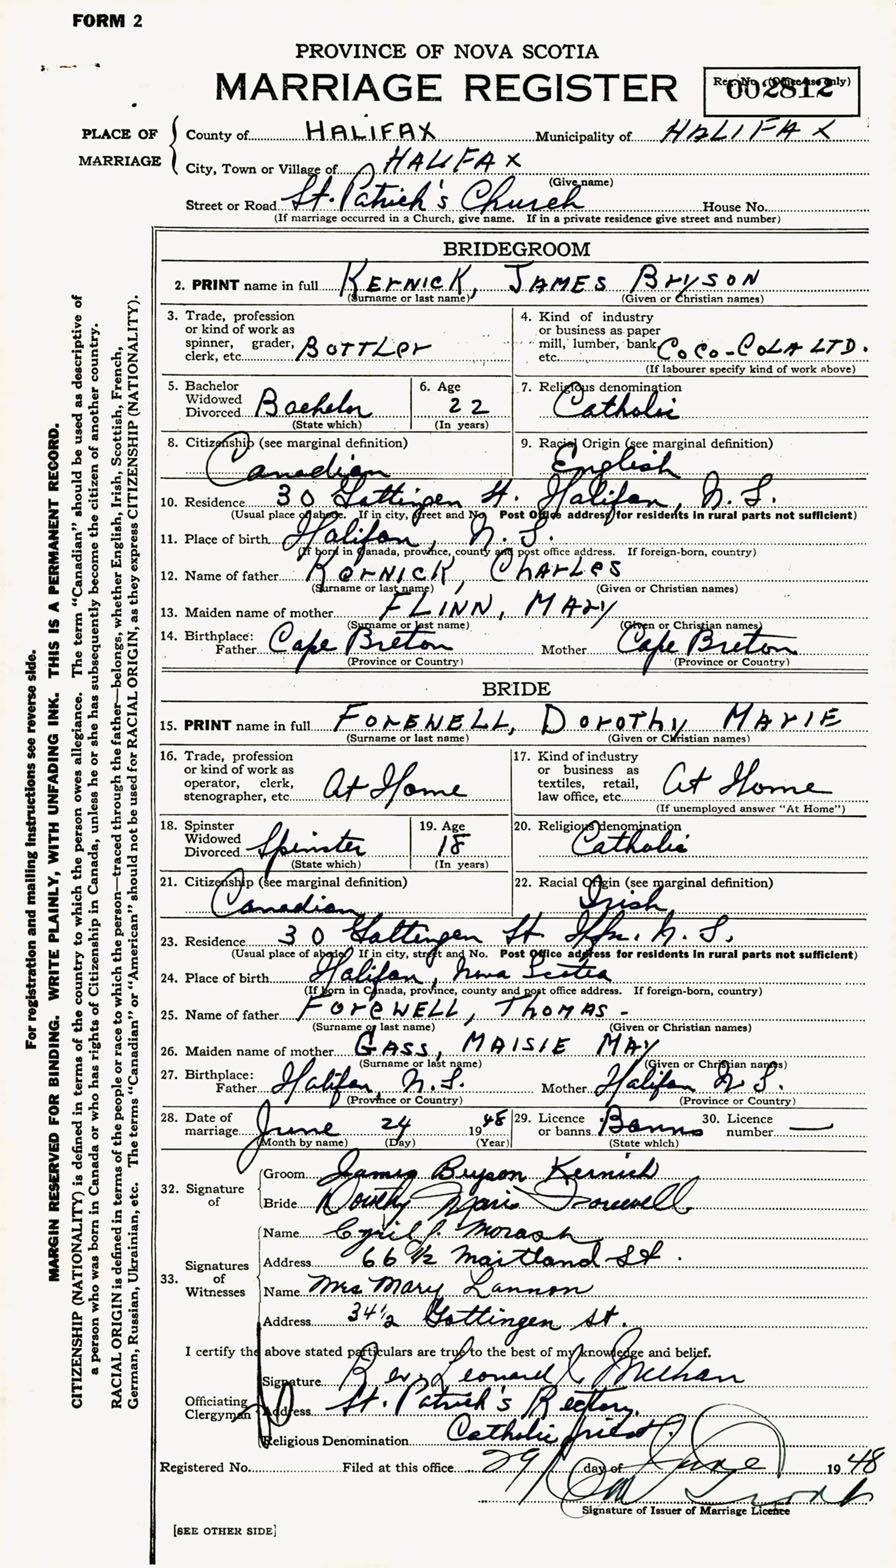 FORM 2
PROVINCE OF NOVA SCOTIA
MARRIAGE REGISTER
Reg. No. (Office use only)
002812
PLACE OF MARRIAGE
County of HALIFAX Municipality of HALIFAX
City, Town or Village of HALIFAX
(Give name)
Street or Road St. Patrick's Church House No.
(If marriage occurred in a Church, give name. If in a private residence give street and number)
BRIDEGROOM
2. PRINT name in full KERNICK, JAMES BRYSON
(Surname or last name) (Given or Christian names)
3. Trade, profession or kind of work as spinner, grader, clerk, etc. BOTTLER
4. Kind of industry or business as paper mill, lumber, bank etc. COCO-COLA LTD.
(If labourer specify kind of work above)
5. Bachelor Widowed Divorced Bachelor
(State which)
6. Age 22
(In years)
7. Religious denomination Catholic
8. Citizenship (see marginal definition) Canadian
9. Racial Origin (see marginal definition) English
10. Residence 30 Gottingen St. Halifax, N.S.
(Usual place of abode. If in city, street and No. Post Office address for residents in rural parts not sufficient)
11. Place of birth Halifax, N.S.
(If born in Canada, province, county and post office address. If foreign-born, country)
12. Name of father KERNICK, CHARLES
(Surname or last name) (Given or Christian names)
13. Maiden name of mother FLINN, MARY
(Surname or last name) (Given or Christian names)
14. Birthplace: Father Cape Breton Mother Cape Breton
(Province or Country) (Province or Country)
BRIDE
15. PRINT name in full FOREWELL, DOROTHY MARIE
(Surname or last name) (Given or Christian names)
16. Trade, profession or kind of work as operator, clerk, stenographer, etc. At Home
17. Kind of industry or business as textiles, retail, law office, etc. At Home
(If unemployed answer "At Home")
18. Spinster Widowed Divorced Spinster
(State which)
19. Age 18
(In years)
20. Religious denomination Catholic
21. Citizenship (see marginal definition) Canadian
22. Racial Origin (see marginal definition) Irish
23. Residence 30 Gottingen St Hfx. N.S.
(Usual place of abode. If in city, street and No. Post Office address for residents in rural parts not sufficient)
24. Place of birth Halifax, Nova Scotia
(If born in Canada, province, county and post office address. If foreign-born, country)
25. Name of father FOREWELL, THOMAS -
(Surname or last name) (Given or Christian names)
26. Maiden name of mother GASS, MAISIE MAY
(Surname or last name) (Given or Christian names)
27. Birthplace: Father Halifax N.S. Mother Halifax N.S.
(Province or Country) (Province or Country)
28. Date of marriage June 24 1948
(Month by name) (Day) (Year)
29. Licence or banns Banns
(State which)
30. Licence number —
32. Signature of
Groom James Bryson Kernick
Bride Dorothy Marie Forewell
33. Signatures of Witnesses
Name Cyril J. Morash
Address 66 1/2 Maitland St.
Name Mrs Mary Lannon
Address 34 1/2 Gottingen St.
I certify the above stated particulars are true to the best of my knowledge and belief.
Officiating Clergyman
Signature Rev. Leonard Meehan
Address St. Patrick's Rectory.
Religious Denomination Catholic priest.
Registered No. Filed at this office 29 day of June 1948
Signature of Issuer of Marriage Licence
[SEE OTHER SIDE]
For registration and mailing instructions see reverse side.
MARGIN RESERVED FOR BINDING. WRITE PLAINLY, WITH UNFADING INK. THIS IS A PERMANENT RECORD.
CITIZENSHIP (NATIONALITY) is defined in terms of the country to which the person owes allegiance. The term "Canadian" should be used as descriptive of
a person who was born in Canada or who has rights of Citizenship in Canada, unless he or she has subsequently become the citizen of another country.
RACIAL ORIGIN is defined in terms of the people or race to which the person—traced through the father—belongs, whether English, Irish, Scottish, French,
German, Russian, Ukrainian, etc. The terms "Canadian" or "American" should not be used for RACIAL ORIGIN, as they express CITIZENSHIP (NATIONALITY).